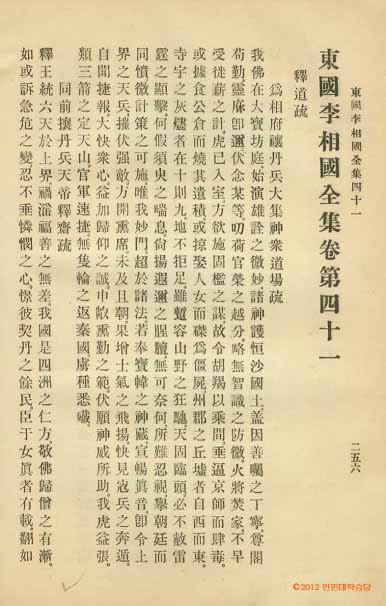 東國李相國全集四十一
二五六
東國李相國全集卷第四十一
釋道疏
爲相府禳丹兵大集神衆道場疏
我佛在大寶坊庭始演雄詮之微妙諸神護恒沙國土蓋因善囑之丁寧尊閣
苟勤靈庥卽邇伏念某等叨荷官榮之越分略無智識之防微火將焚家不早
受徙薪之計虎已入室方欲施固檻之謀故令胡羯以乘間垂逼京師而肆毒
或據食公倉而燒其遺積或掠娶人女而磔爲僵屍州郡之丘墟者自西而東
寺宇之灰燼者在十則九地不拒足雖暫容山野之狂馳天固臨頭必不赦雷
霆之顯擊何假須臾之喘息尙揚遐邇之腥膻無可奈何所難忍視擧朝廷而
同憤微計策之可施唯我妙門超於諸法若奉寶幢之神蔵宣暢眞音卽令上
界之天兵摧伏强敵方開熏席未及且朝果增士氣之飛揚快見寇兵之奔遁
自聞捷報大快心益加歸仰之誠申敞熏勤之範伏願神威所助我虎益張
類三箭之定天山官軍速捷無隻輪之返秦國虜種悉殲
同前攘丹兵天帝釋齋疏
釋王統六天於上界禍淫福善之無差我國是四洲之仁方敬佛歸僧之有漸
如或訴急危之變忍不垂憐憫之心憬彼契丹之餘民臣于女眞者有載翻如
©2012 인민대학습당